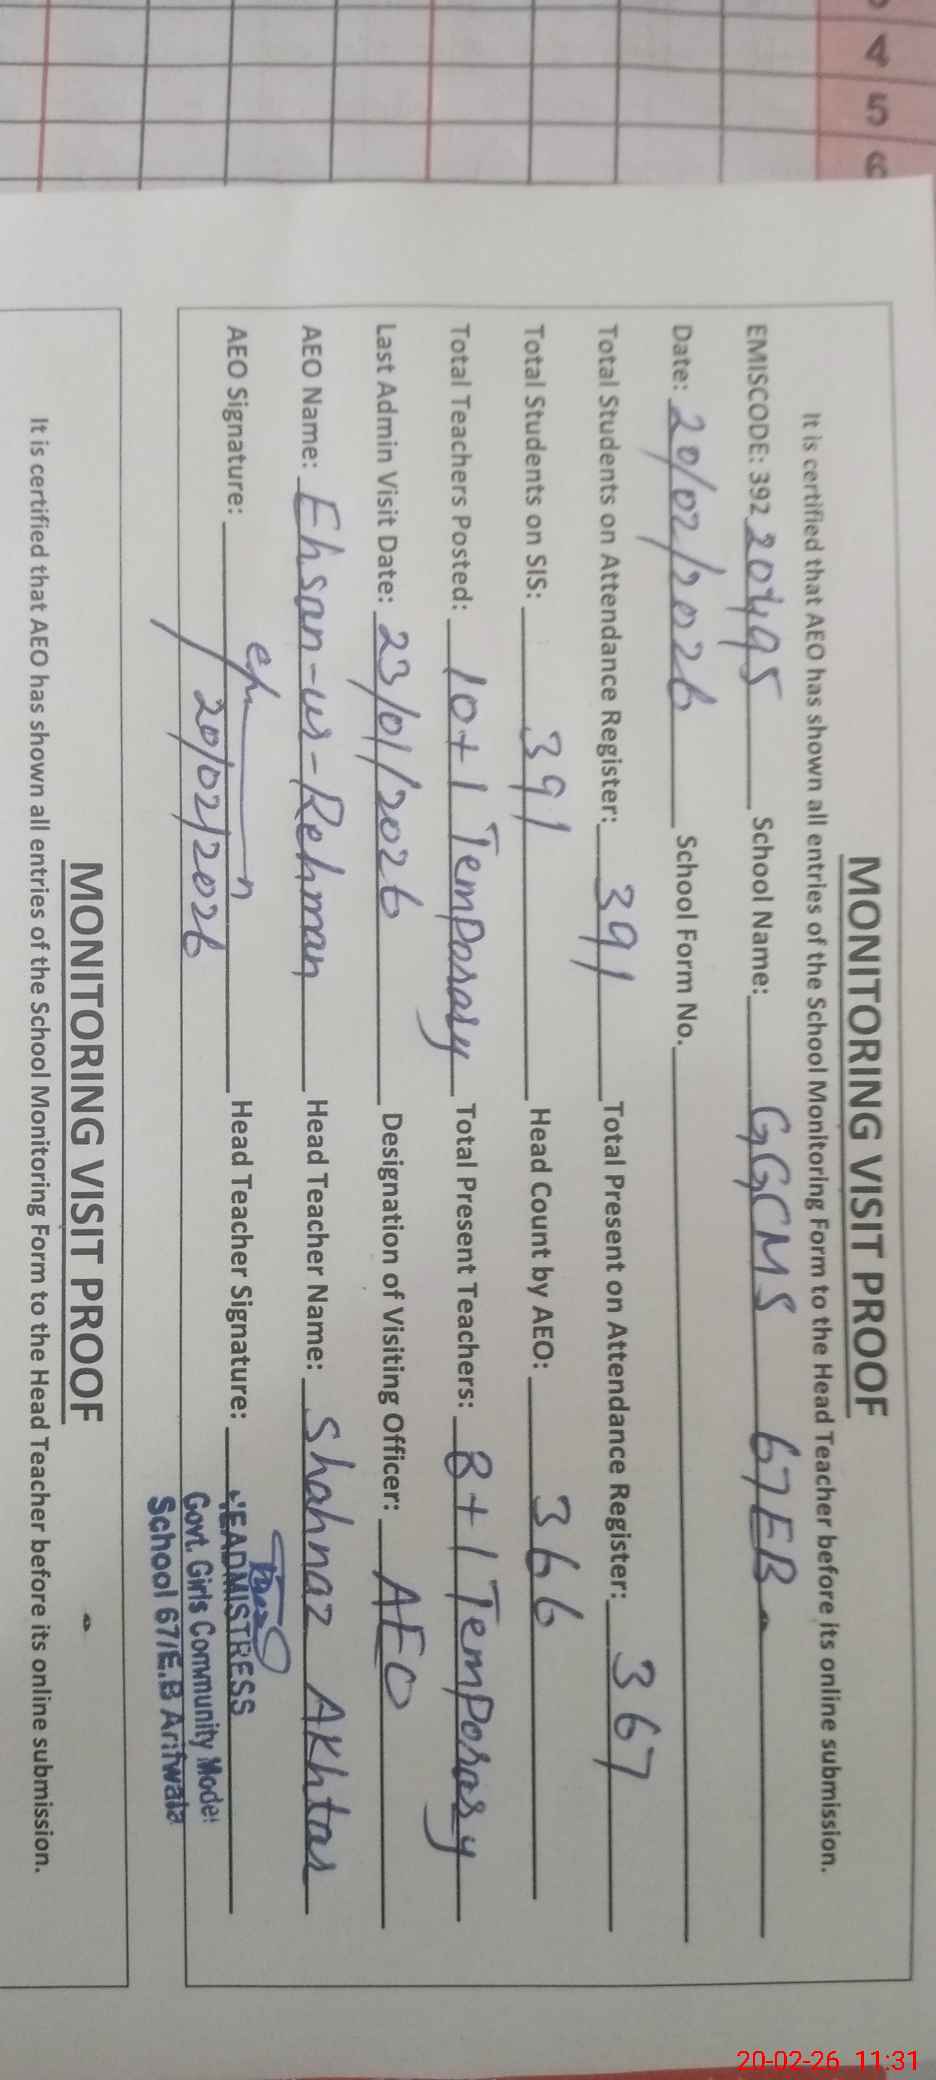 4 5 6
MONITORING VISIT PROOF
It is certified that AEO has shown all entries of the School Monitoring Form to the Head Teacher before its online submission.
EMISCODE: 392 20495 School Name: GGCMS 67EB
Date: 20/02/2026 School Form No.
Total Students on Attendance Register: 391 Total Present on Attendance Register: 367
Total Students on SIS: 391 Head Count by AEO: 366
Total Teachers Posted: 10+1 Temporary Total Present Teachers: 8+1 Temporary
Last Admin Visit Date: 23/01/2026 Designation of Visiting Officer: AEO
AEO Name: Ehsan-ur-Rehman Head Teacher Name: Shahnaz Akhtar
AEO Signature: Head Teacher Signature:
20/02/2026
HEADMISTRESS
Govt. Girls Community Model
School 67/E.B Arifwala
MONITORING VISIT PROOF
It is certified that AEO has shown all entries of the School Monitoring Form to the Head Teacher before its online submission.
20-02-26 11:31